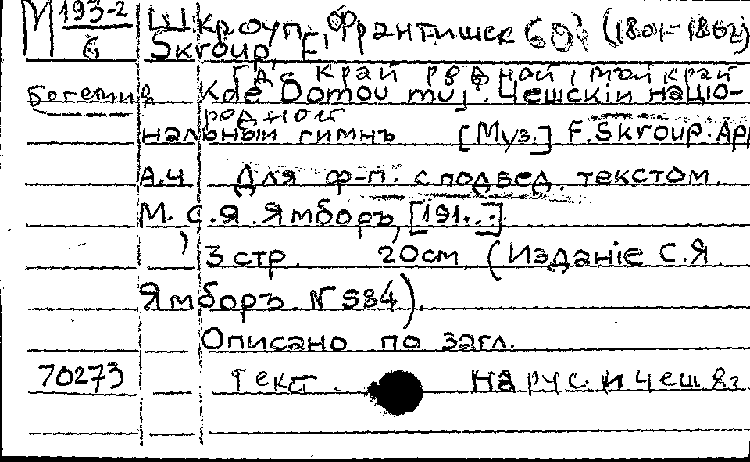 М 193-2
6
Шкроуп, Франтишек (1801-1862)
Skroup, F.
Где край родной, мой край
Богемия Kde Domov muj. Чешскiй нацiо-
родной
нальный гимнъ [Муз.] F. Skroup. Арр
А.Ч Для ф-п. с подвед. текстом.
М. С.Я. Ямборъ, [191..-]
3 стр. 20см (Изданiе С.Я
Ямборъ N 584).
Описано по загл.
70273 Текст. на рус. и чеш яз